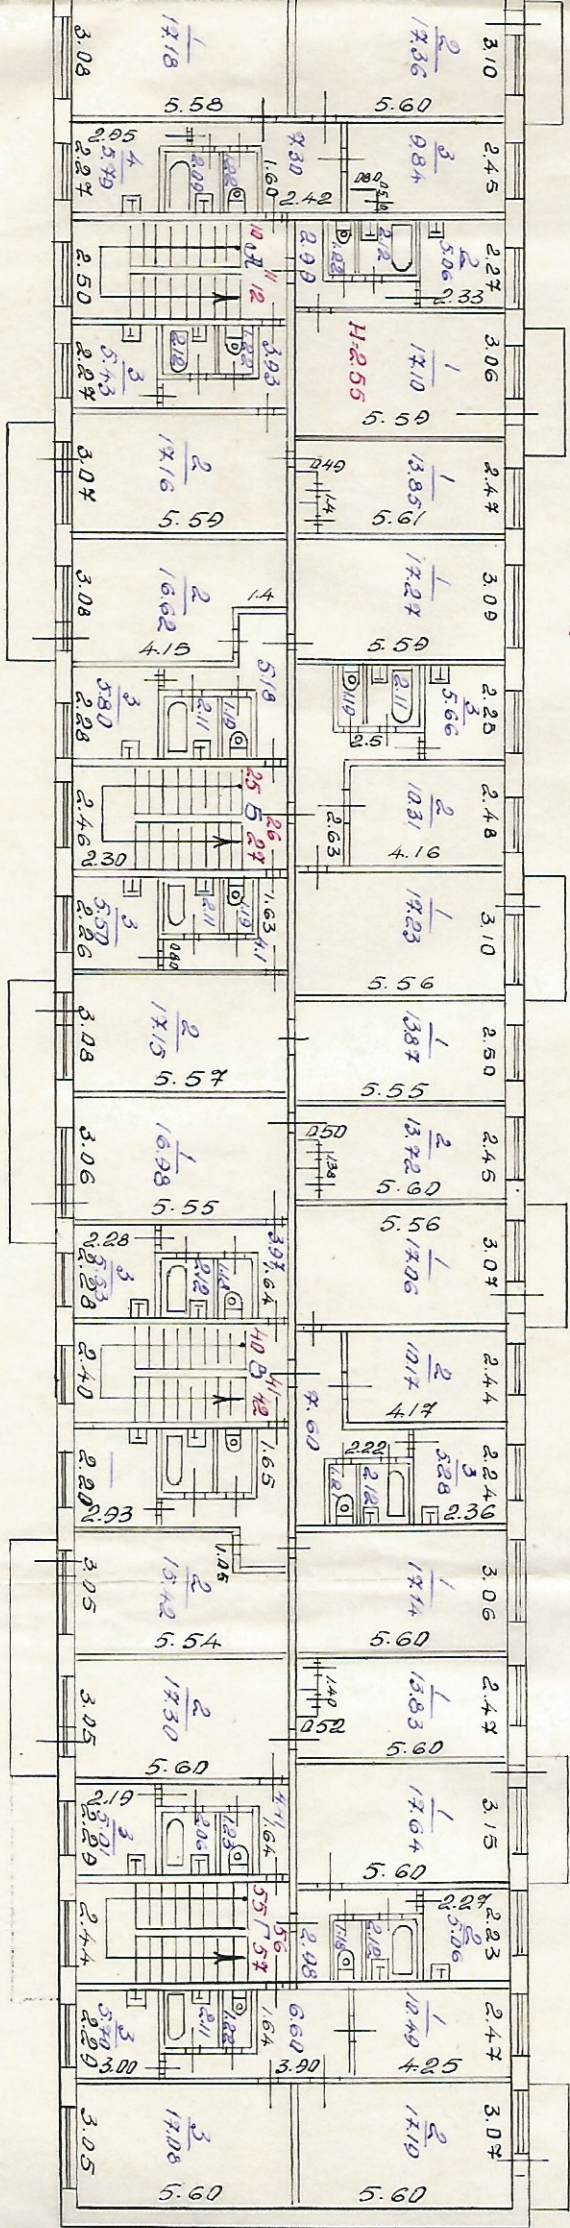 3.08
1
17.18
5.58
2
17.36
3.10
5.60
2.95
4
5.79
2.27
2.09
1.60
7.30
2.42
3
9.84
2.45
0.80
10
Л
11
12
2.50
2.99
1.22
2.12
2
5.06
2.27
2.33
3
5.43
2.27
2.12
1.22
3.93
H-2.55
1
17.10
3.06
5.59
3.07
2
17.16
5.59
0.49
1.4
1
13.85
2.47
5.61
3.08
2
16.62
1.4
4.15
1
17.27
3.09
5.59
3
5.80
2.28
2.11
1.19
5.18
1.19
2.11
3
5.66
2.25
2.5
25
Б
26
27
2.46
2.30
2.63
2
10.31
2.48
4.16
3
5.50
2.26
2.11
1.19
1.63
4.1
0.80
1
17.23
3.10
5.56
3.08
2
17.15
5.57
1
13.87
2.50
5.55
3.06
1
16.98
5.55
0.50
1.38
2
13.72
2.45
5.60
2.28
3
5.53
2.28
2.12
1.18
3.97
1.64
5.56
1
17.06
3.07
40
В
41
42
2.40
7.60
2
10.17
2.44
4.17
2.20
2.93
1.65
2.22
1.21
2.12
3
5.28
2.24
2.36
3.05
2
15.42
1.05
5.54
1
17.14
3.06
5.60
3.05
2
17.30
5.60
1.40
0.52
1
13.83
2.47
5.60
2.19
3
5.01
2.29
2.06
1.23
4.41
1.64
1
17.64
3.15
5.60
55
Г
56
57
2.44
2.48
1.18
2.12
2
5.06
2.23
2.27
3
5.70
2.29
3.00
2.11
1.22
1.64
6.60
3.90
1
10.49
2.47
4.25
3.05
3
17.08
5.60
2
17.19
3.07
5.60